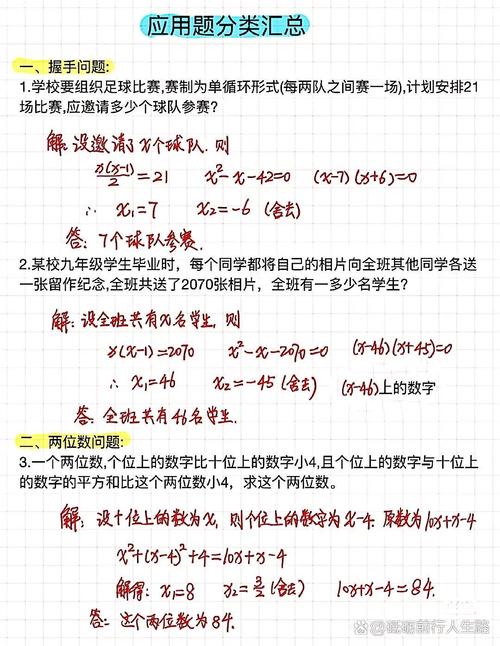 应用题分类汇总
一、握手问题:
1.学校要组织足球比赛,赛制为单循环形式(每两队之间赛一场),计划安排21
场比赛,应邀请多少个球队参赛?
解:设邀请了x个球队.则
x(x-1)/2=21 x²-x-42=0 (x-7)(x+6)=0
∴ x₁=7 x₂=-6 (舍去)
答:7个球队参赛.
2.某校九年级学生毕业时，每个同学都将自己的相片向全班其他同学各送
一张留作纪念,全班共送了2070张相片，全班有一多少名学生？
解:设全班共有x名学生，则
x(x-1)=2070 x²-x-2070=0 (x-46)(x+45)=0
∴ x₁=46 x₂=-45(舍去) (x-46)上的数字
答:全班共有46名学生.
二、两位数问题:
3.一个两位数,个位上的数字比十位上的数字小4,且个位上的数字与十位上
的数字的平方和比这个两位数小4，求这个两位数。
解:设十位上的数为x,则个位上的数字为x-4.原数为10x+x-4
x²+(x-4)²+4=10x+x-4
解得:x₁=8 x₂=3/2(舍去) 10x+x-4=84.
答:这个两位数为84.
@砥砺前行人生路